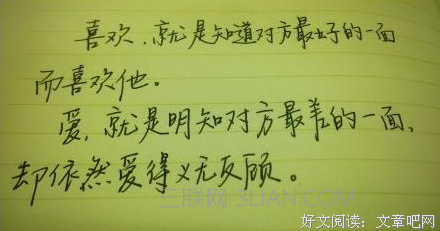 喜欢，就是知道对方最好的一面
而喜欢他。
爱，就是明知对方最差的一面，
却依然爱得义无反顾。
三联网 3LIAN.COM
好文阅读：文章吧网